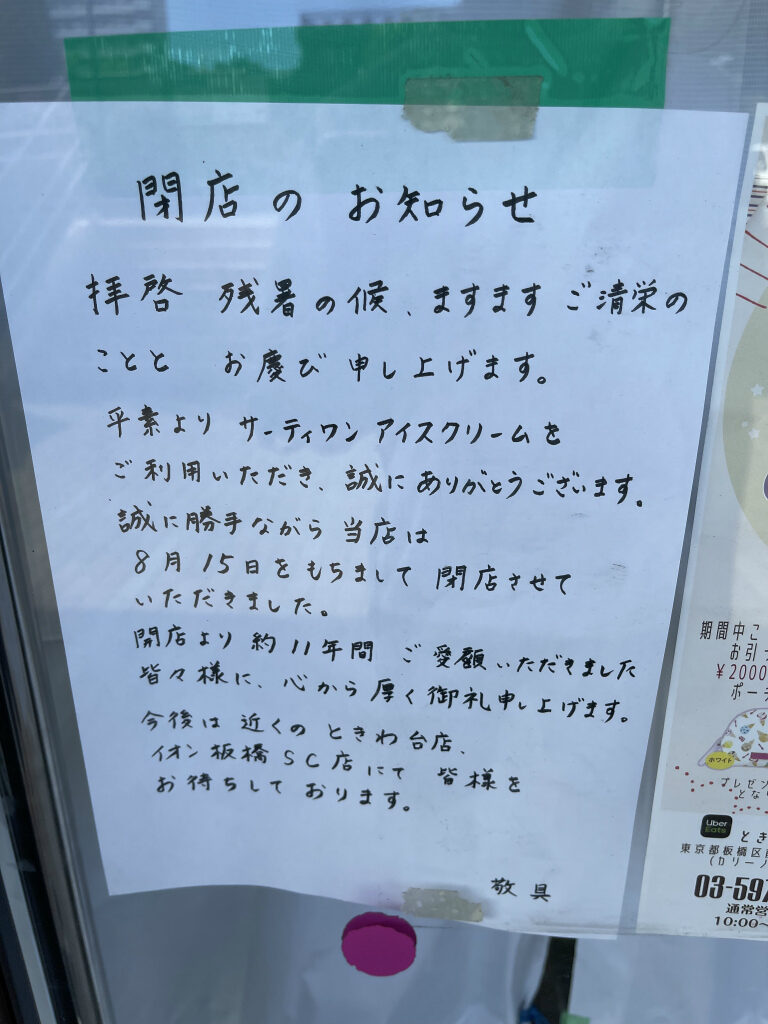 閉店の お知らせ
拝啓 残暑の候、ますます ご清栄の
ことと お慶び 申し上げます。
平素より サーティワン アイスクリームを
ご利用いただき、誠に ありがとうございます。
誠に勝手ながら 当店は
8月15日をもちまして 閉店させて
いただきました。
開店より 約11年間 ご愛顧いただきました
皆々様に、心から厚く御礼申し上げます。
今後は 近くの ときわ台店、
イオン板橋SC店にて 皆様を
お待ちして おります。
敬具
期間中こ
お引
¥2000
ポー
ホワイト
プレゼン
とな
Uber
Eats
とき
東京都板橋区
(カリーノ
03-597
通常営
10:00~